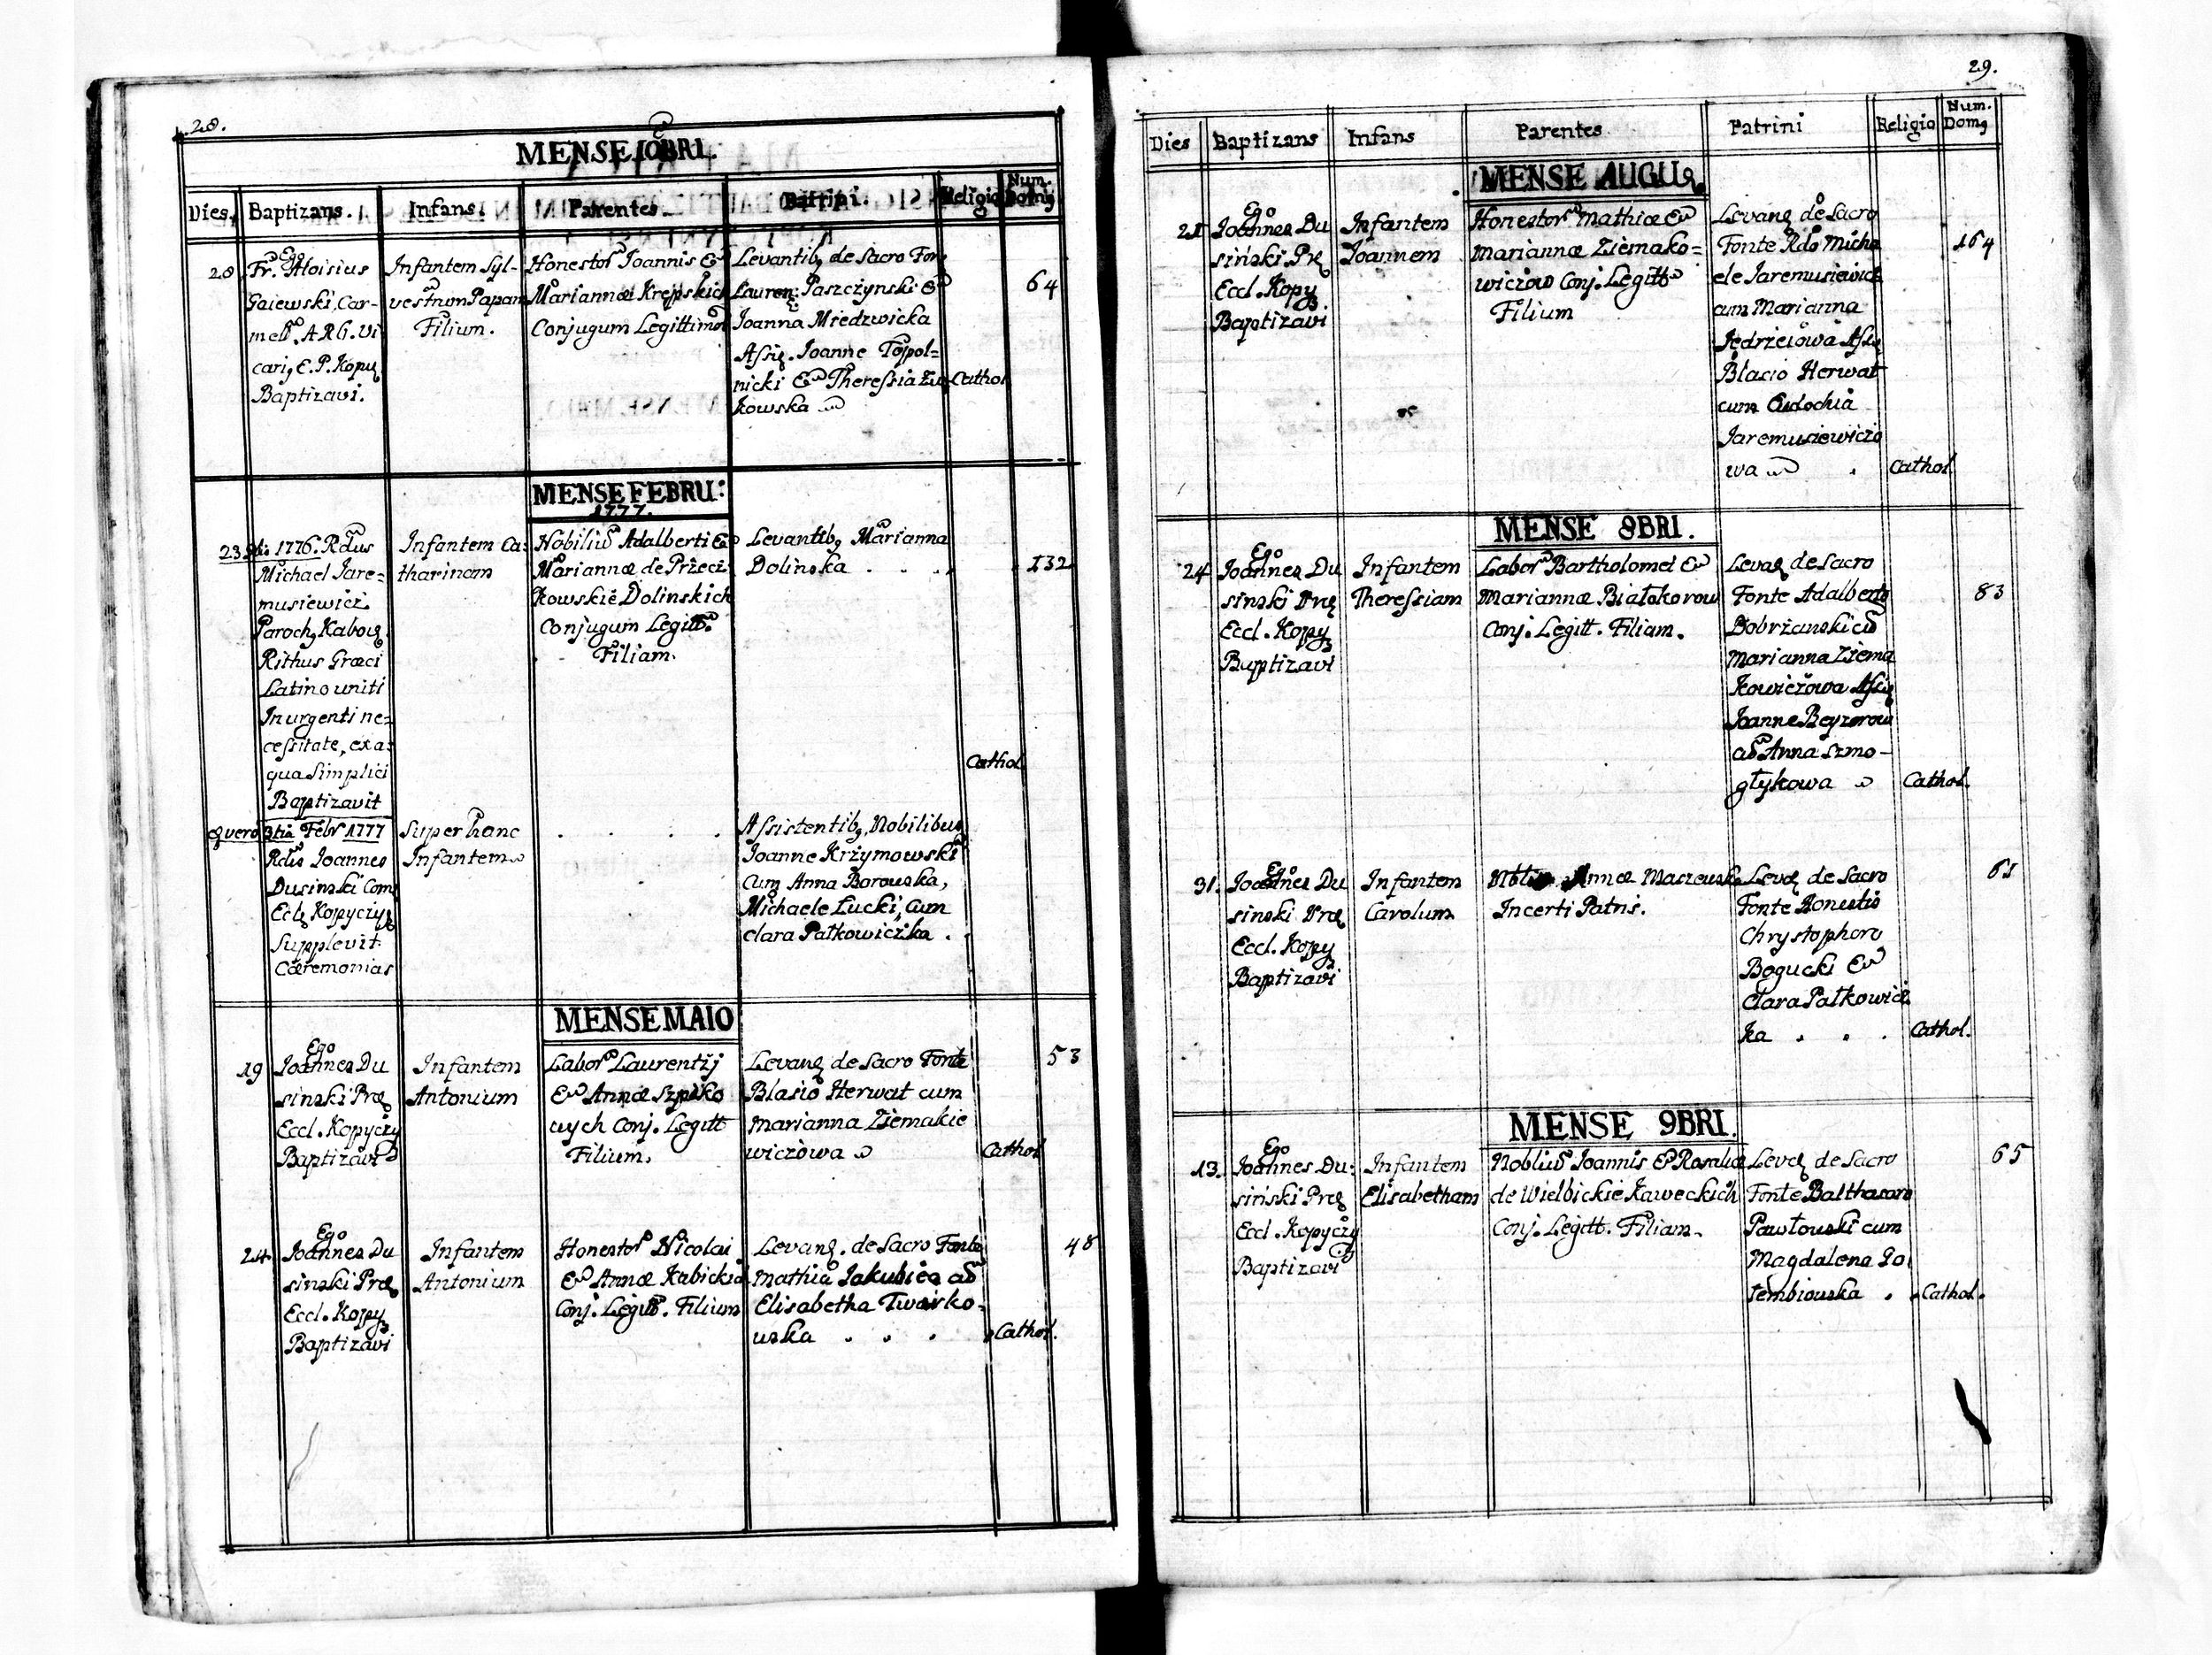 28.
MENSE 10BRI.
Dies. Baptizans. Infans. Parentes Patrini. Religio Num. Domq
28
Ego
Fr. Aloisius
Gaiewski, Car-
mel. A. R. G. Vi
cariq E. P. Kopy
Baptizavi.
Infantem Syl-
vestrum Papam
Filium.
Honestor Joannis &
Mariannæ Krepskich
Conjugum Legittimor
Levantibq de Sacro Fon
Lauren: Paszczynski &
Joanna Miedzwicka
Assiq. Joanne Topol=
nicki & Theressia Zu
kowska
Cathol
64
MENSE FEBRU:
1777.
23 9bris 1776. Rdus
Michael Jare=
musiewicz
Parochq Kabow
Rithus Græci
Latino uniti
In urgenti ne=
cessitate, ex a=
qua Simplici
Baptizavit
Infantem Ca=
tharinam
Nobiliu Adalberti &
Mariannæ de Przecz
kowskie Dolinskich
Conjugum Legitt.
Filiam.
Levantibq Marianna
Dolinska . . .
Cathol.
132
eq vero 3tia Febr 1777
Rdus Joannes
Dusinski Com
Eclq Kopyczy
Supplevit
Cæremonias
Super hanc
Infantem
Assistentibq Nobilibus
Joanne Krzymowski
cum Anna Borowska,
Michaele Łucki, cum
Clara Patkowiczka .
MENSE MAIO
19
Ego
Joannes Du
sinski Præ
Eccl. Kopyczy
Baptizavi
Infantem
Antonium
Labor Laurentij
& Annæ Szpiko
wych Conj. Legitt
Filium.
Levanq de Sacro Fonte
Blasio Herwat cum
Marianna Ziemakie
wiczowa
Cathol
53
24.
Ego
Joannes Du
sinski Præ
Eccl. Kopy
Baptizavi
Infantem
Antonium
Honestor Nicolai
& Annæ Kabickich
Conj. Legitt. Filium
Levanq. de Sacro Fonte
Mathia Jakubiec
Elisabetha Twarko-
wska . . .
Cathol.
48
29.
Dies Baptizans Infans Parentes Patrini Religio Num. Domq
MENSE AUGUq.
21
Ego
Joannes Du
siński Pre
Eccl. Kopy
Baptizavi
Infantem
Joannem
Honestor Mathiæ &
Mariannæ Ziemako=
wiczow Conj. Legitt
Filium
Levanq de Sacro
Fonte Rdo Micha
ele Jaremusiewicz
cum Marianna
Jedrzeiowa Assiq
Blasio Herwat
cum Eudochia
Jaremusiewiczo
wa .
Cathol.
164
MENSE 8BRI.
24
Ego
Joannes Du
sinski Præ
Eccl. Kopy
Baptizavi
Infantem
Theressiam
Labor Bartholomei &
Mariannæ Białokorow
Conj. Legitt. Filiam.
Levaq de Sacro
Fonte Adalberto
Dobrzanski cu
Marianna Ziema
kowiczowa Assiq
Joanne Beyzerow
Anna Szmo-
głykowa
Cathol.
83
31.
Ego
Joannes Du
sinski Præ
Eccl. Kopy
Baptizavi
Infantem
Carolum
Annæ Marzewsk
Incerti Patris.
Levaq de Sacro
Fonte Honestis
Chrystophoro
Bogucki &
Clara Patkowicz
ka . . .
Cathol.
61
MENSE 9BRI.
13.
Ego
Joannes Du:
siński Præ
Eccl. Kopyczy
Baptizavi
Infantem
Elisabetham
Nobliu Joannis & Rosaliæ
de Wielbickie Kaweckich
Conj. Legitt. Filiam.
Levaq de Sacro
Fonte Balthasaro
Pawłowski cum
Magdalena Go
łembiowska .
Cathol.
65